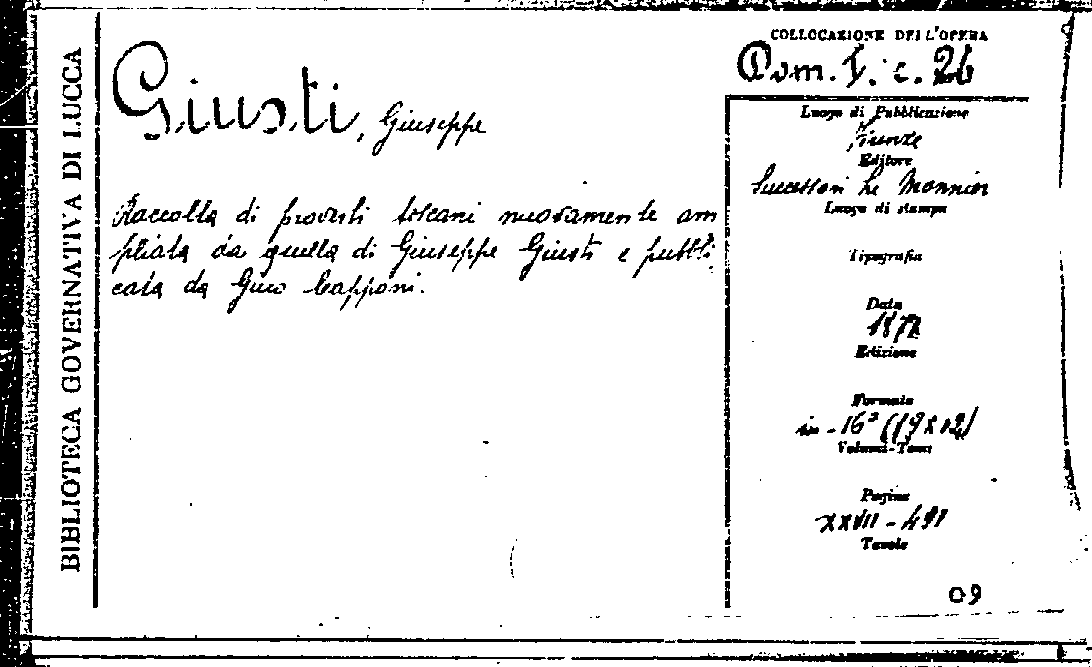 BIBLIOTECA GOVERNATIVA DI LUCCA
Giusti, Giuseppe
Raccolta di proverbi toscani nuovamente am
pliata da quella di Giuseppe Giusti e pubbli
cata da Gino Capponi.
COLLOCAZIONE DELL'OPERA
Dom. I. c. 26
Luogo di Pubblicazione
Firenze
Editore
Successori Le Monnier
Luogo di stampa
Tipografia
Data
Edizione
Formato
in - 16° (19x12)
Volumi-Tomi
Pagine
XXVII -
Tavole
09